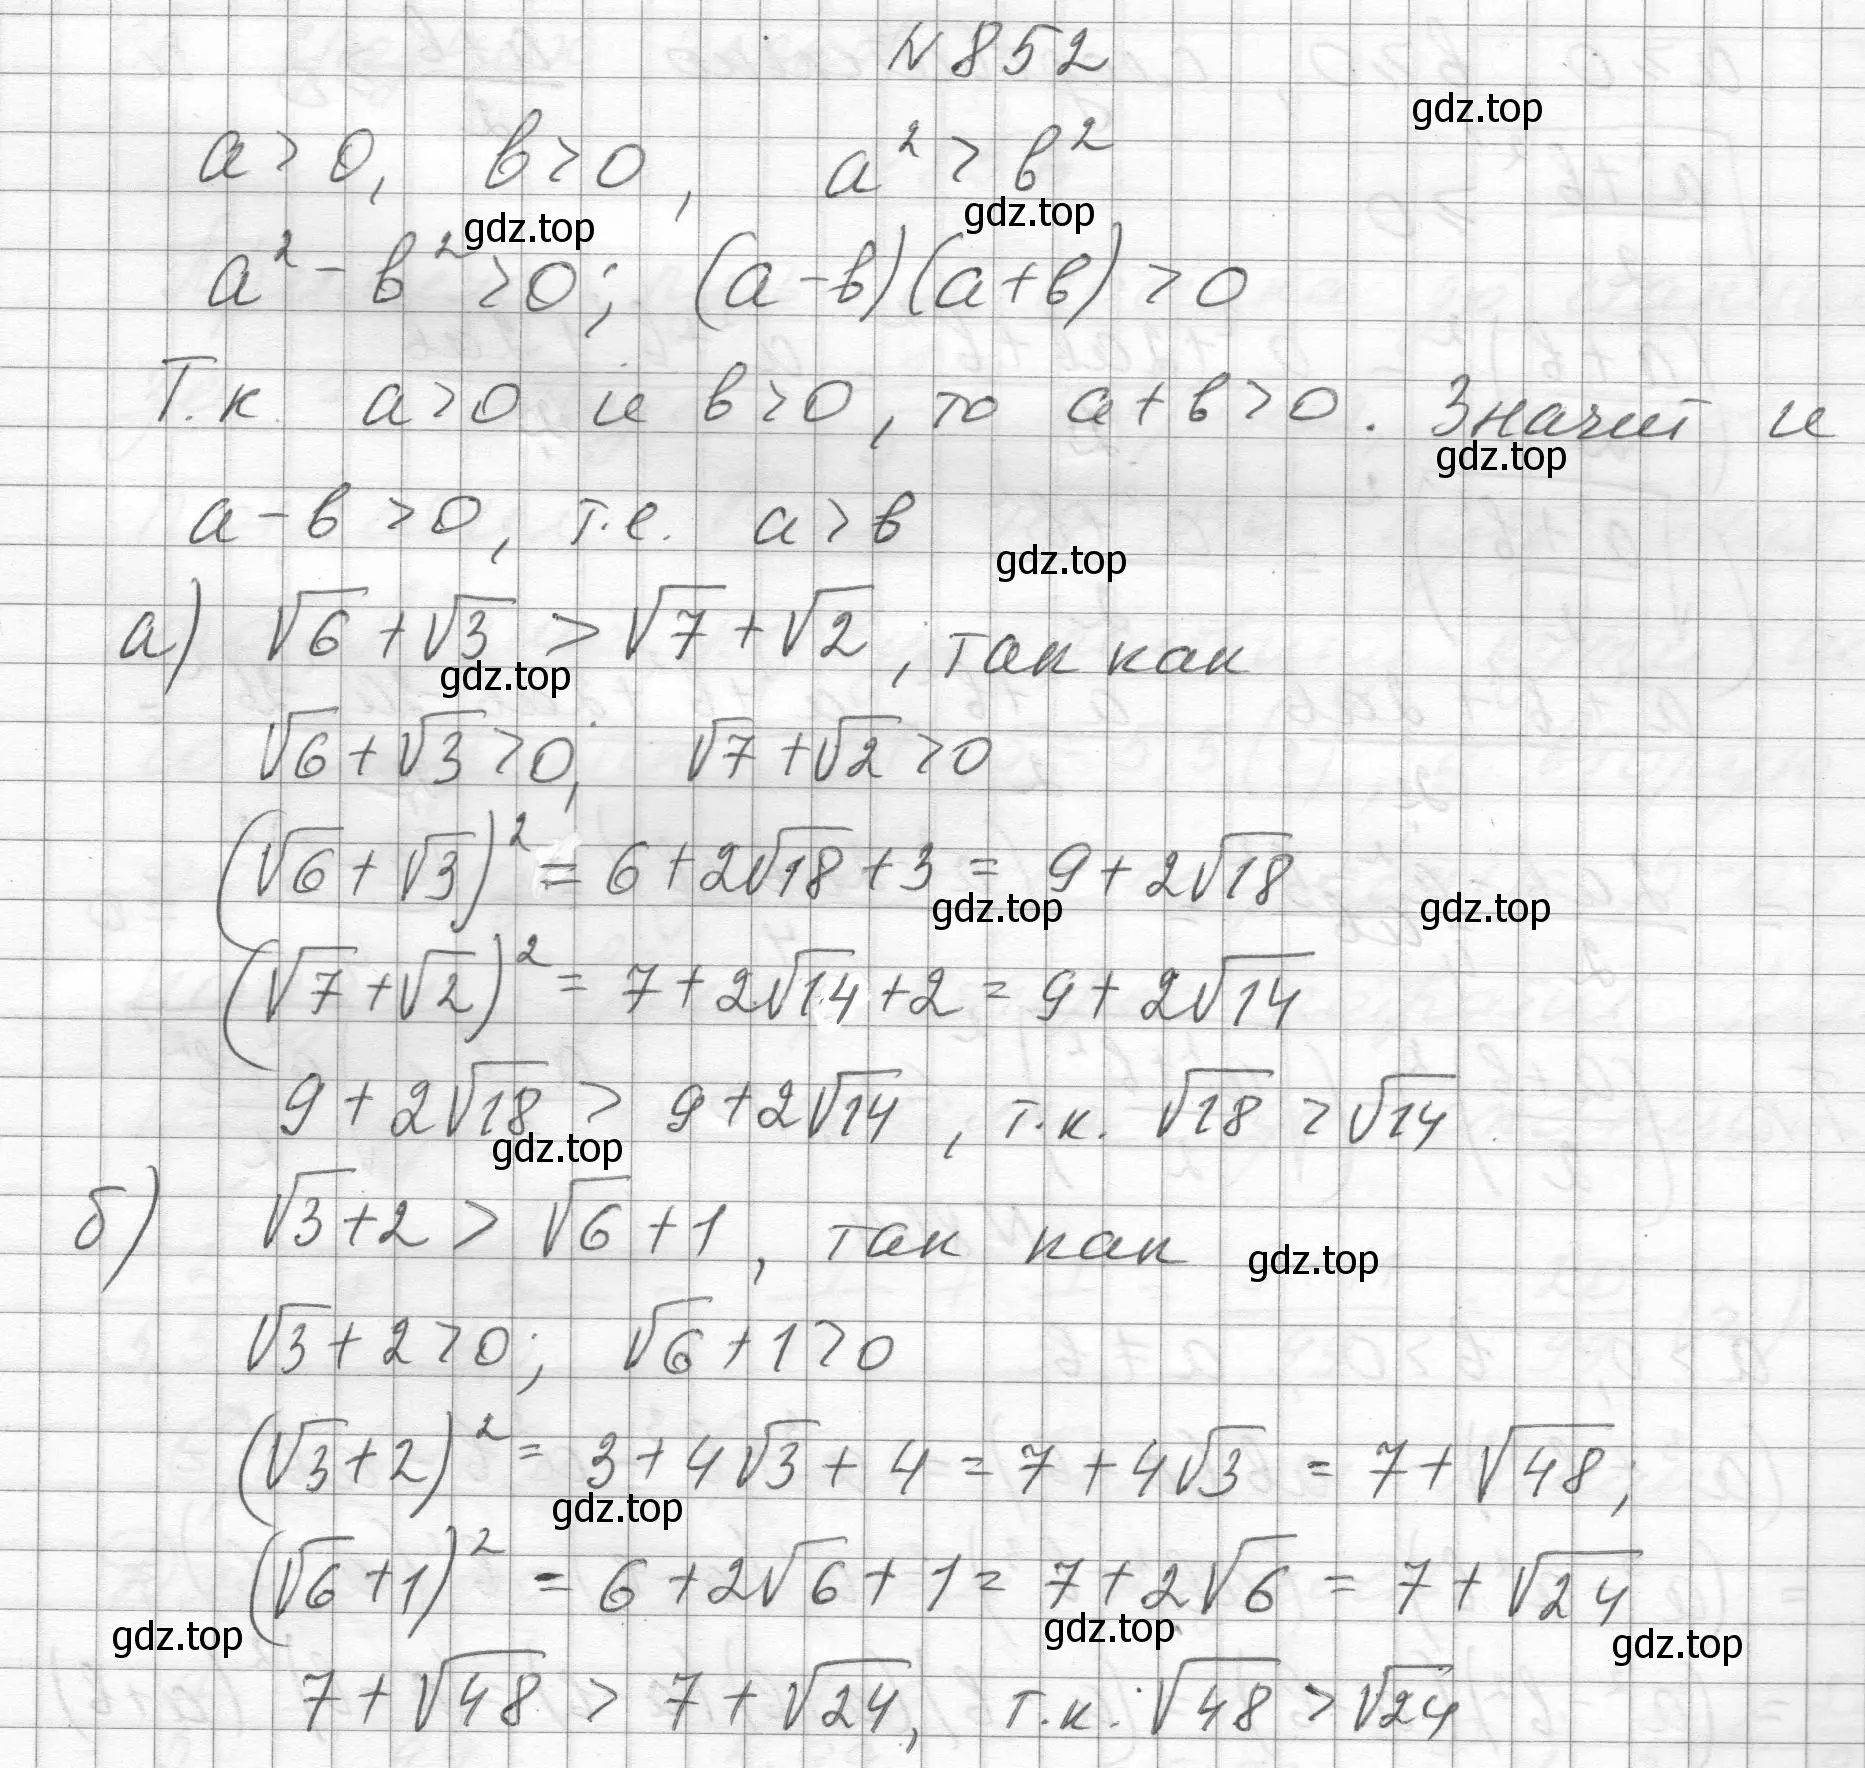 N 852
gdz.top
a > 0, в > 0, a² > в²
gdz.top gdz.top
a² - в² > 0; (a - в)(a + в) > 0
Т.к. a > 0 и в > 0, то a + в > 0. Значит и
gdz.top
a - в > 0, т.е. a > в
gdz.top
а) √6 + √3 > √7 + √2, так как
gdz.top
√6 + √3 > 0; √7 + √2 > 0
(√6 + √3)² = 6 + 2√18 + 3 = 9 + 2√18
gdz.top gdz.top
(√7 + √2)² = 7 + 2√14 + 2 = 9 + 2√14
9 + 2√18 > 9 + 2√14, т.к. √18 > √14
gdz.top
б) √3 + 2 > √6 + 1, так как
gdz.top
√3 + 2 > 0; √6 + 1 > 0
(√3 + 2)² = 3 + 4√3 + 4 = 7 + 4√3 = 7 + √48;
gdz.top
(√6 + 1)² = 6 + 2√6 + 1 = 7 + 2√6 = 7 + √24
gdz.top gdz.top gdz.top
7 + √48 > 7 + √24, т.к. √48 > √24